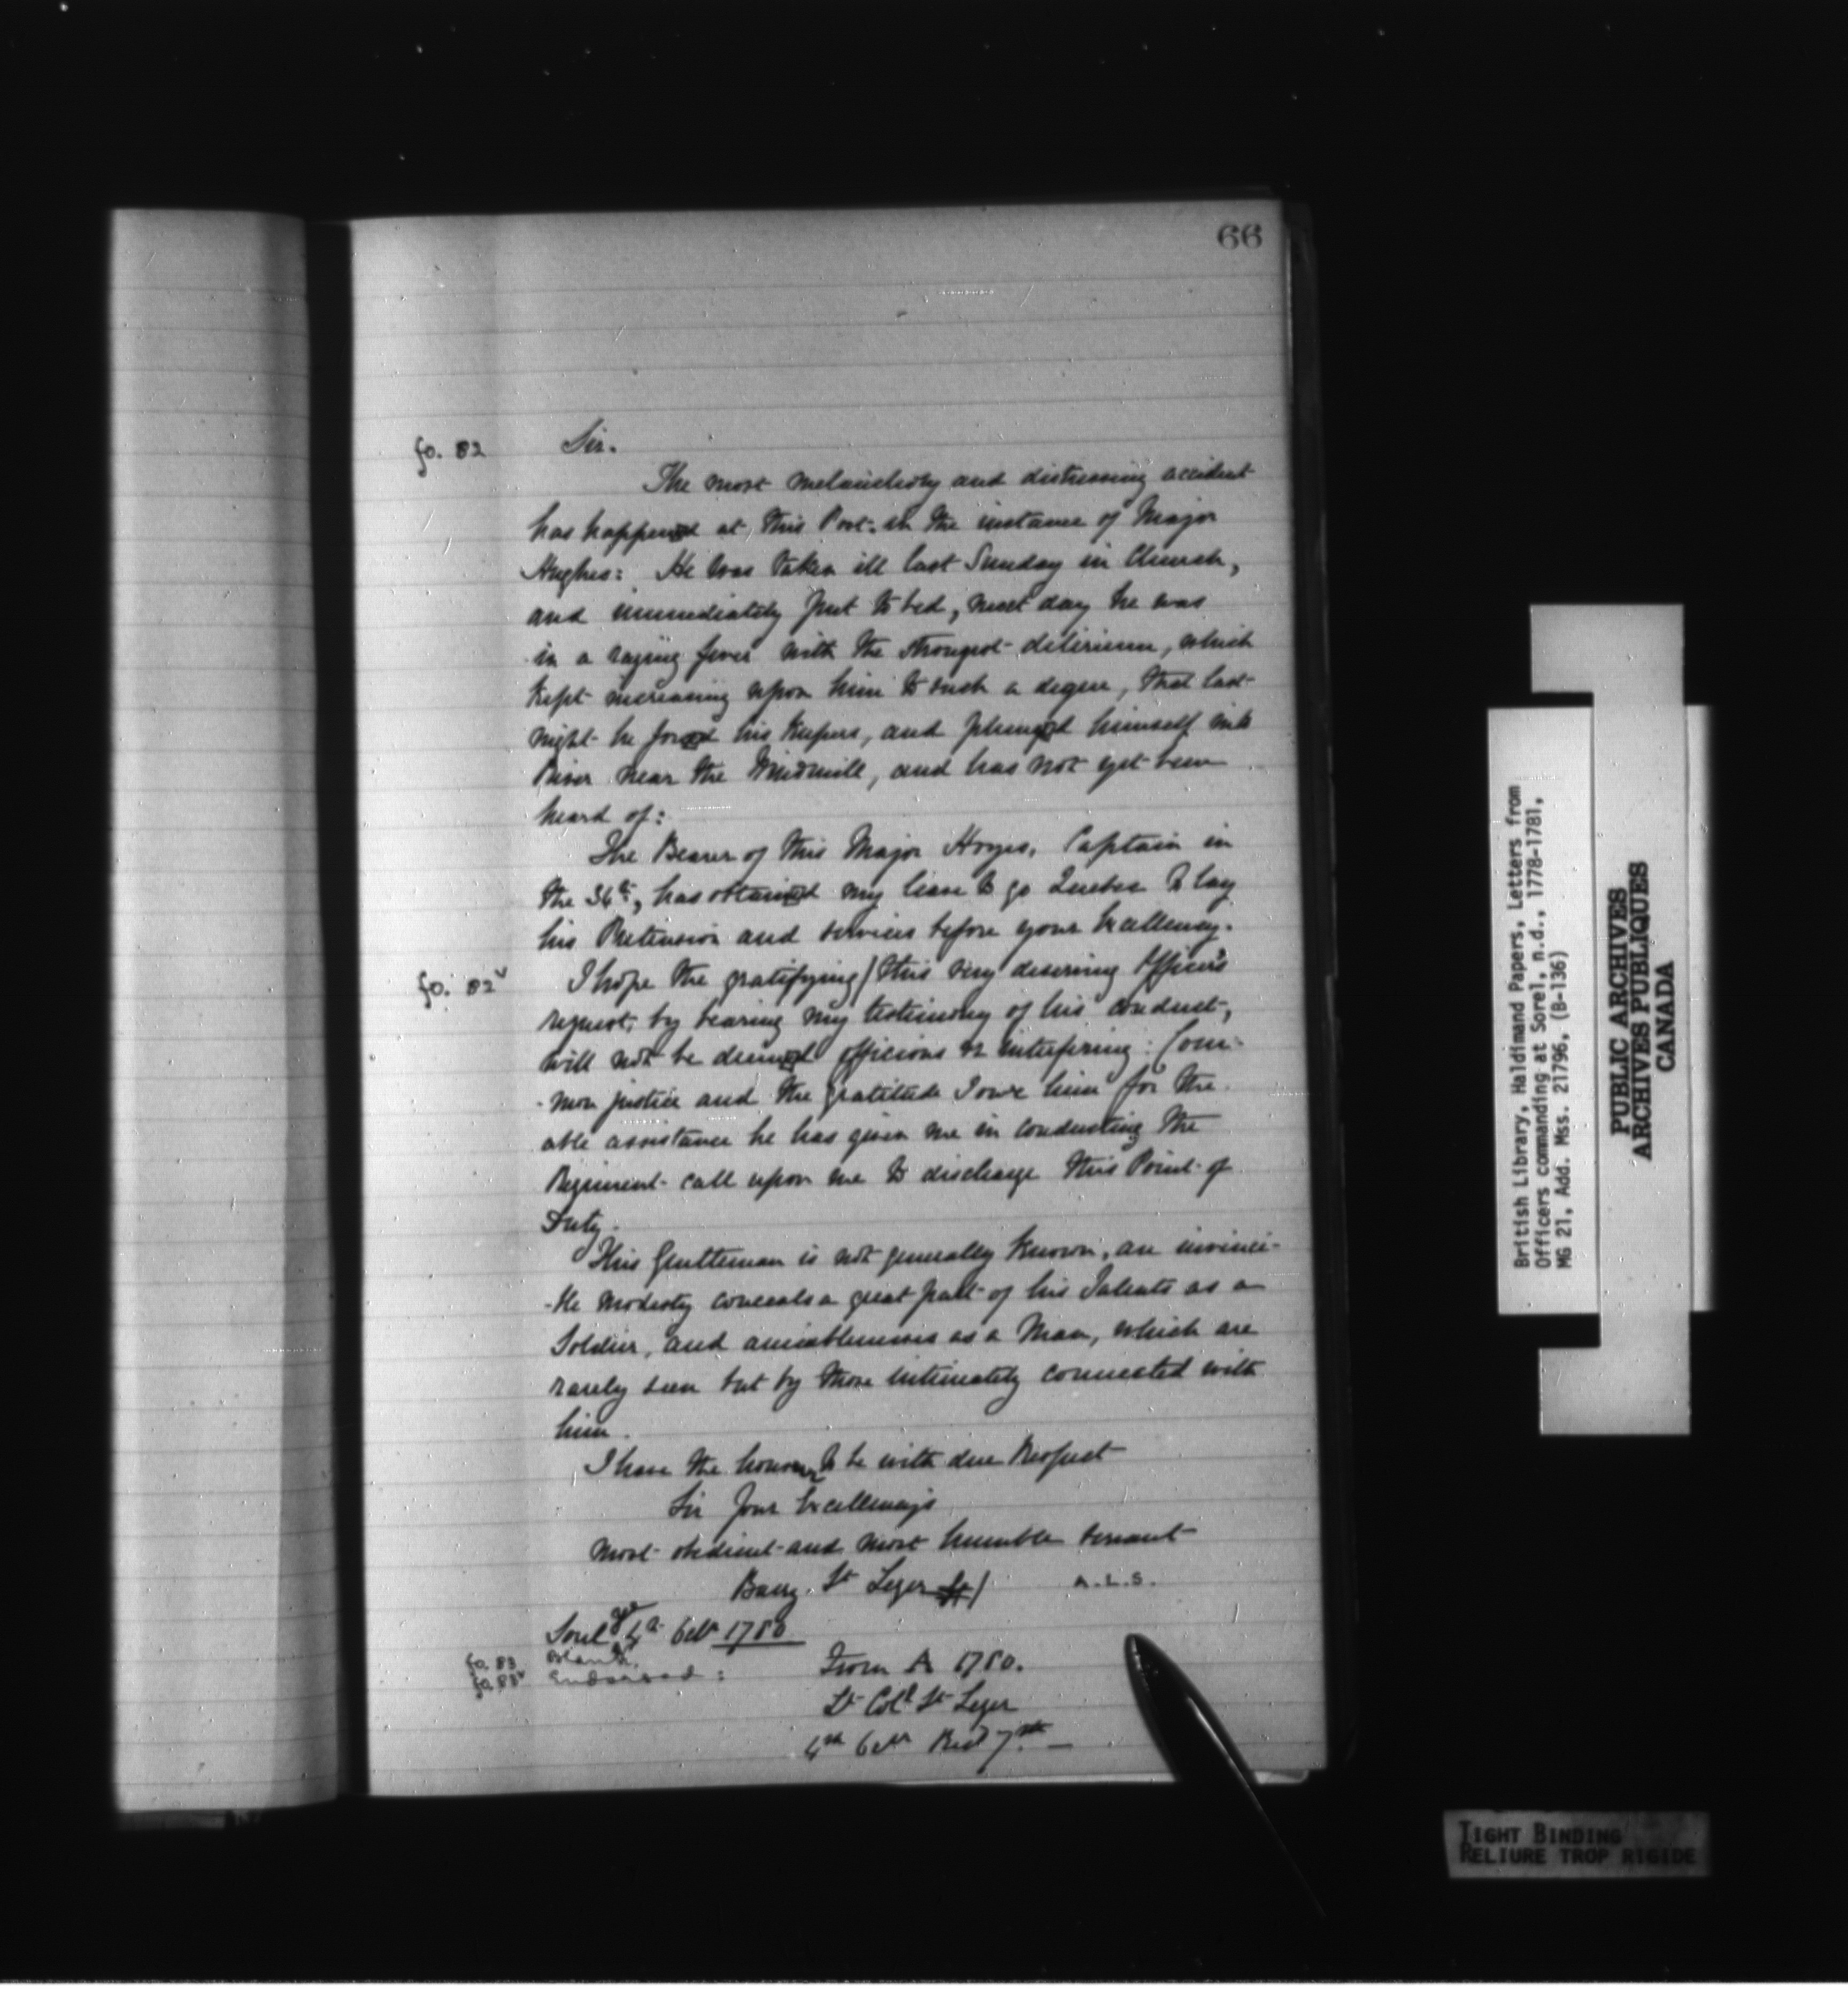 66
fo. 82
Sir.
The most melancholy and distressing accident
has happened at this Post in the instance of Major
Hughes: He was taken ill last Sunday in Church,
and immediately put to bed, next day he was
in a raging fever with the strongest delirium, which
kept increasing upon him to such a degree, that last
night he forced his Keepers, and plunged himself into
River near the Windmill, and has not yet been
heard of:
The Bearer of this Major Hoyes, Captain in
the 34th, has obtained my leave to go Quebec to lay
his Pretension and services before your Excellency.
fo. 82v
I hope the gratifying / this very deserving Officer's
request, by bearing my testimony of his conduct,
will not be deemed officious or interfering: Com-
-mon justice and the gratitude I owe him for the
able assistance he has given me in conducting the
Regiment call upon me to discharge this Point of
Duty.
This Gentleman is not generally known, an invinci-
-ble modesty conceals a great part of his Talents as a
Soldier, and amiableness as a Man, which are
rarely seen but by those intimately connected with
him.
I have the honour to be with due Respect
Sir Your Excellency's
most obedient and most humble servant
Barry St Leger
A.L.S.
Sorel 4th 1780
fo. 83 Blank.
fo. 83v Endorsed:
From A 1780.
Lt Coll St Leger
4th Recd 7th
British Library, Haldimand Papers, Letters from
Officers commanding at Sorel, n.d., 1778-1781,
MG 21, Add. Mss. 21796, (B-136)
PUBLIC ARCHIVES
ARCHIVES PUBLIQUES
CANADA
TIGHT BINDING
RELIURE TROP RIGIDE